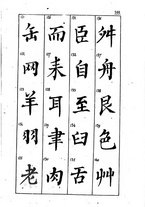 缶
网
羊
羽
老
而
耒
耳
聿
肉
臣
自
至
臼
舌
舛
舟
艮
色
艸